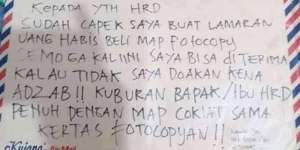 KEPADA YTH HRD
SUDAH CAPEK SAYA BUAT LAMARAN
UANG HABIS BELI MAP FOTOCOPY
SEMOGA KALI INI SAYA BISA DITERIMA
KALAU TIDAK SAYA DOAKAN KENA
ADZAB!! KUBURAN BAPAK/IBU HRD
PENUH DENGAN MAP COKLAT SAMA
KERTAS FOTOCOPYAN!!
Kujang